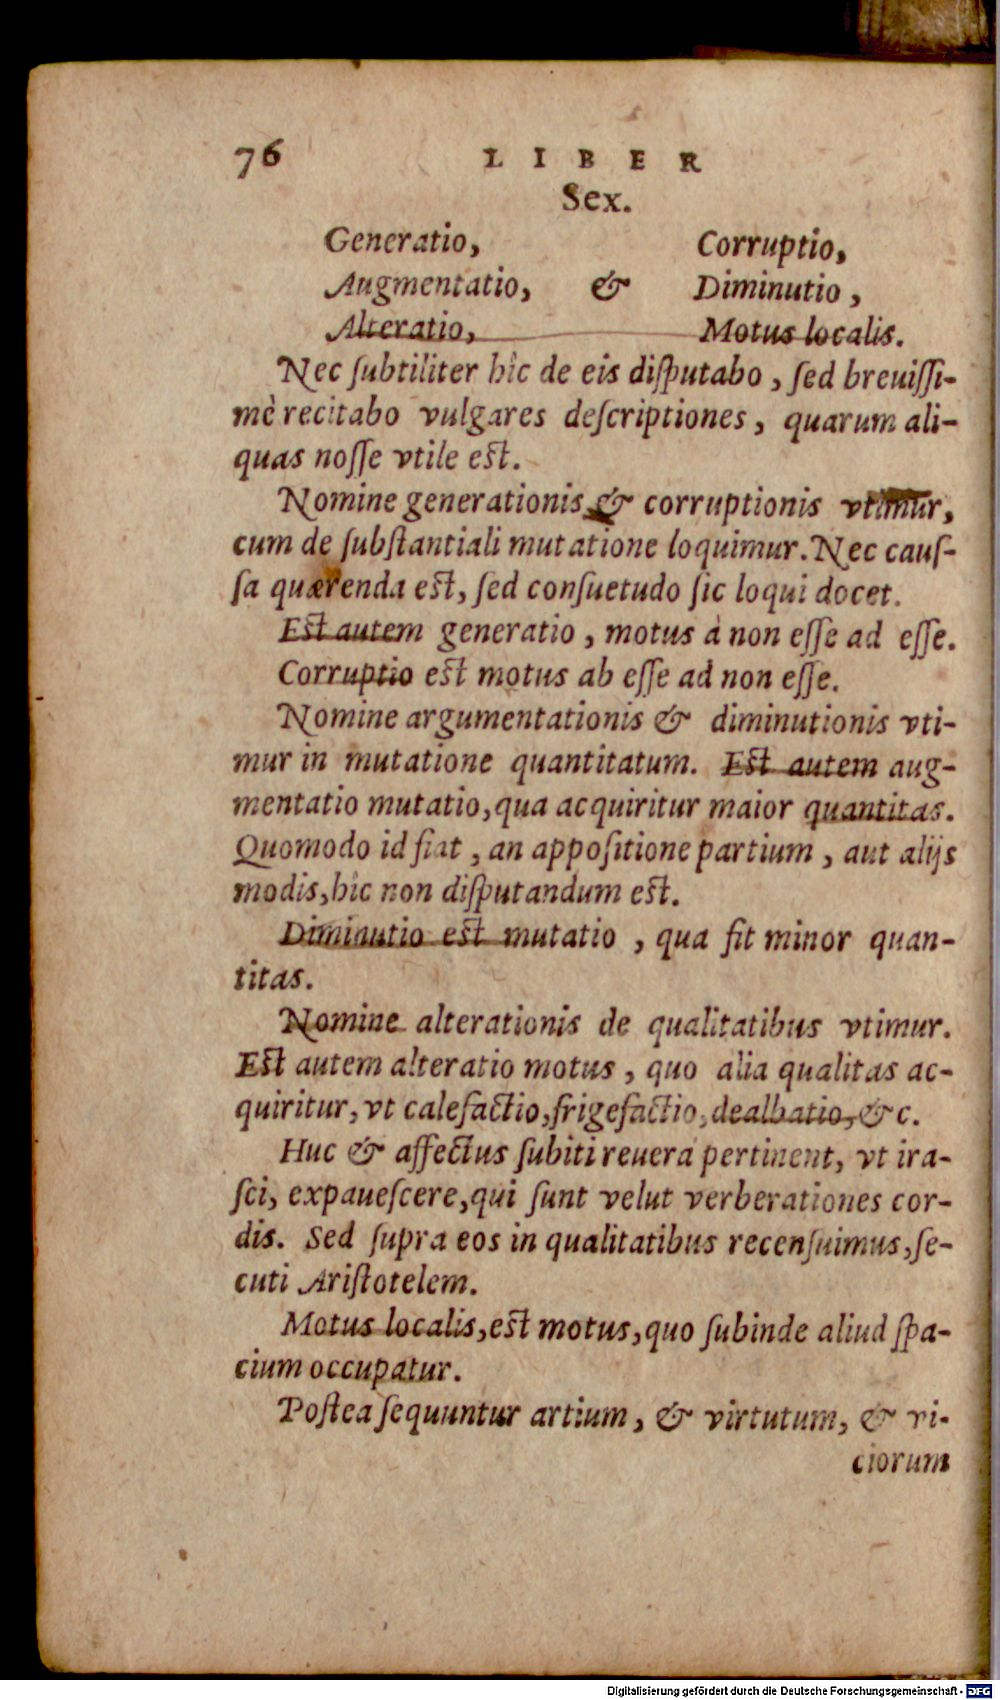 76 LIBER
Sex.
Generatio, Corruptio,
Augmentatio, & Diminutio,
Alteratio, Motus localis.
Nec ſubtiliter hîc de eis diſputabo, ſed breuiſſi-
mè recitabo vulgares deſcriptiones, quarum ali-
quas noſſe vtile eſt.
Nomine generationis & corruptionis vtimur,
cum de ſubſtantiali mutatione loquimur. Nec cauſ-
ſa quærenda eſt, ſed conſuetudo ſic loqui docet.
Eſt autem generatio, motus à non eſſe ad eſſe.
Corruptio eſt motus ab eſſe ad non eſſe.
Nomine argumentationis & diminutionis vti-
mur in mutatione quantitatum. Eſt autem aug-
mentatio mutatio, qua acquiritur maior quantitas.
Quomodo id fiat, an appoſitione partium, aut alijs
modis, hîc non diſputandum eſt.
Diminutio eſt mutatio, qua fit minor quan-
titas.
Nomine alterationis de qualitatibus vtimur.
Eſt autem alteratio motus, quo alia qualitas ac-
quiritur, vt calefactio, frigefactio, dealbatio, &c.
Huc & affectus ſubiti reuera pertinent, vt ira-
ſci, expaueſcere, qui ſunt velut verberationes cor-
dis. Sed ſupra eos in qualitatibus recenſuimus, ſe-
cuti Ariſtotelem.
Motus localis, eſt motus, quo ſubinde aliud ſpa-
cium occupatur.
Poſtea ſequuntur artium, & virtutum, & vi-
ciorum
Digitalisierung gefördert durch die Deutsche Forschungsgemeinschaft - DFG